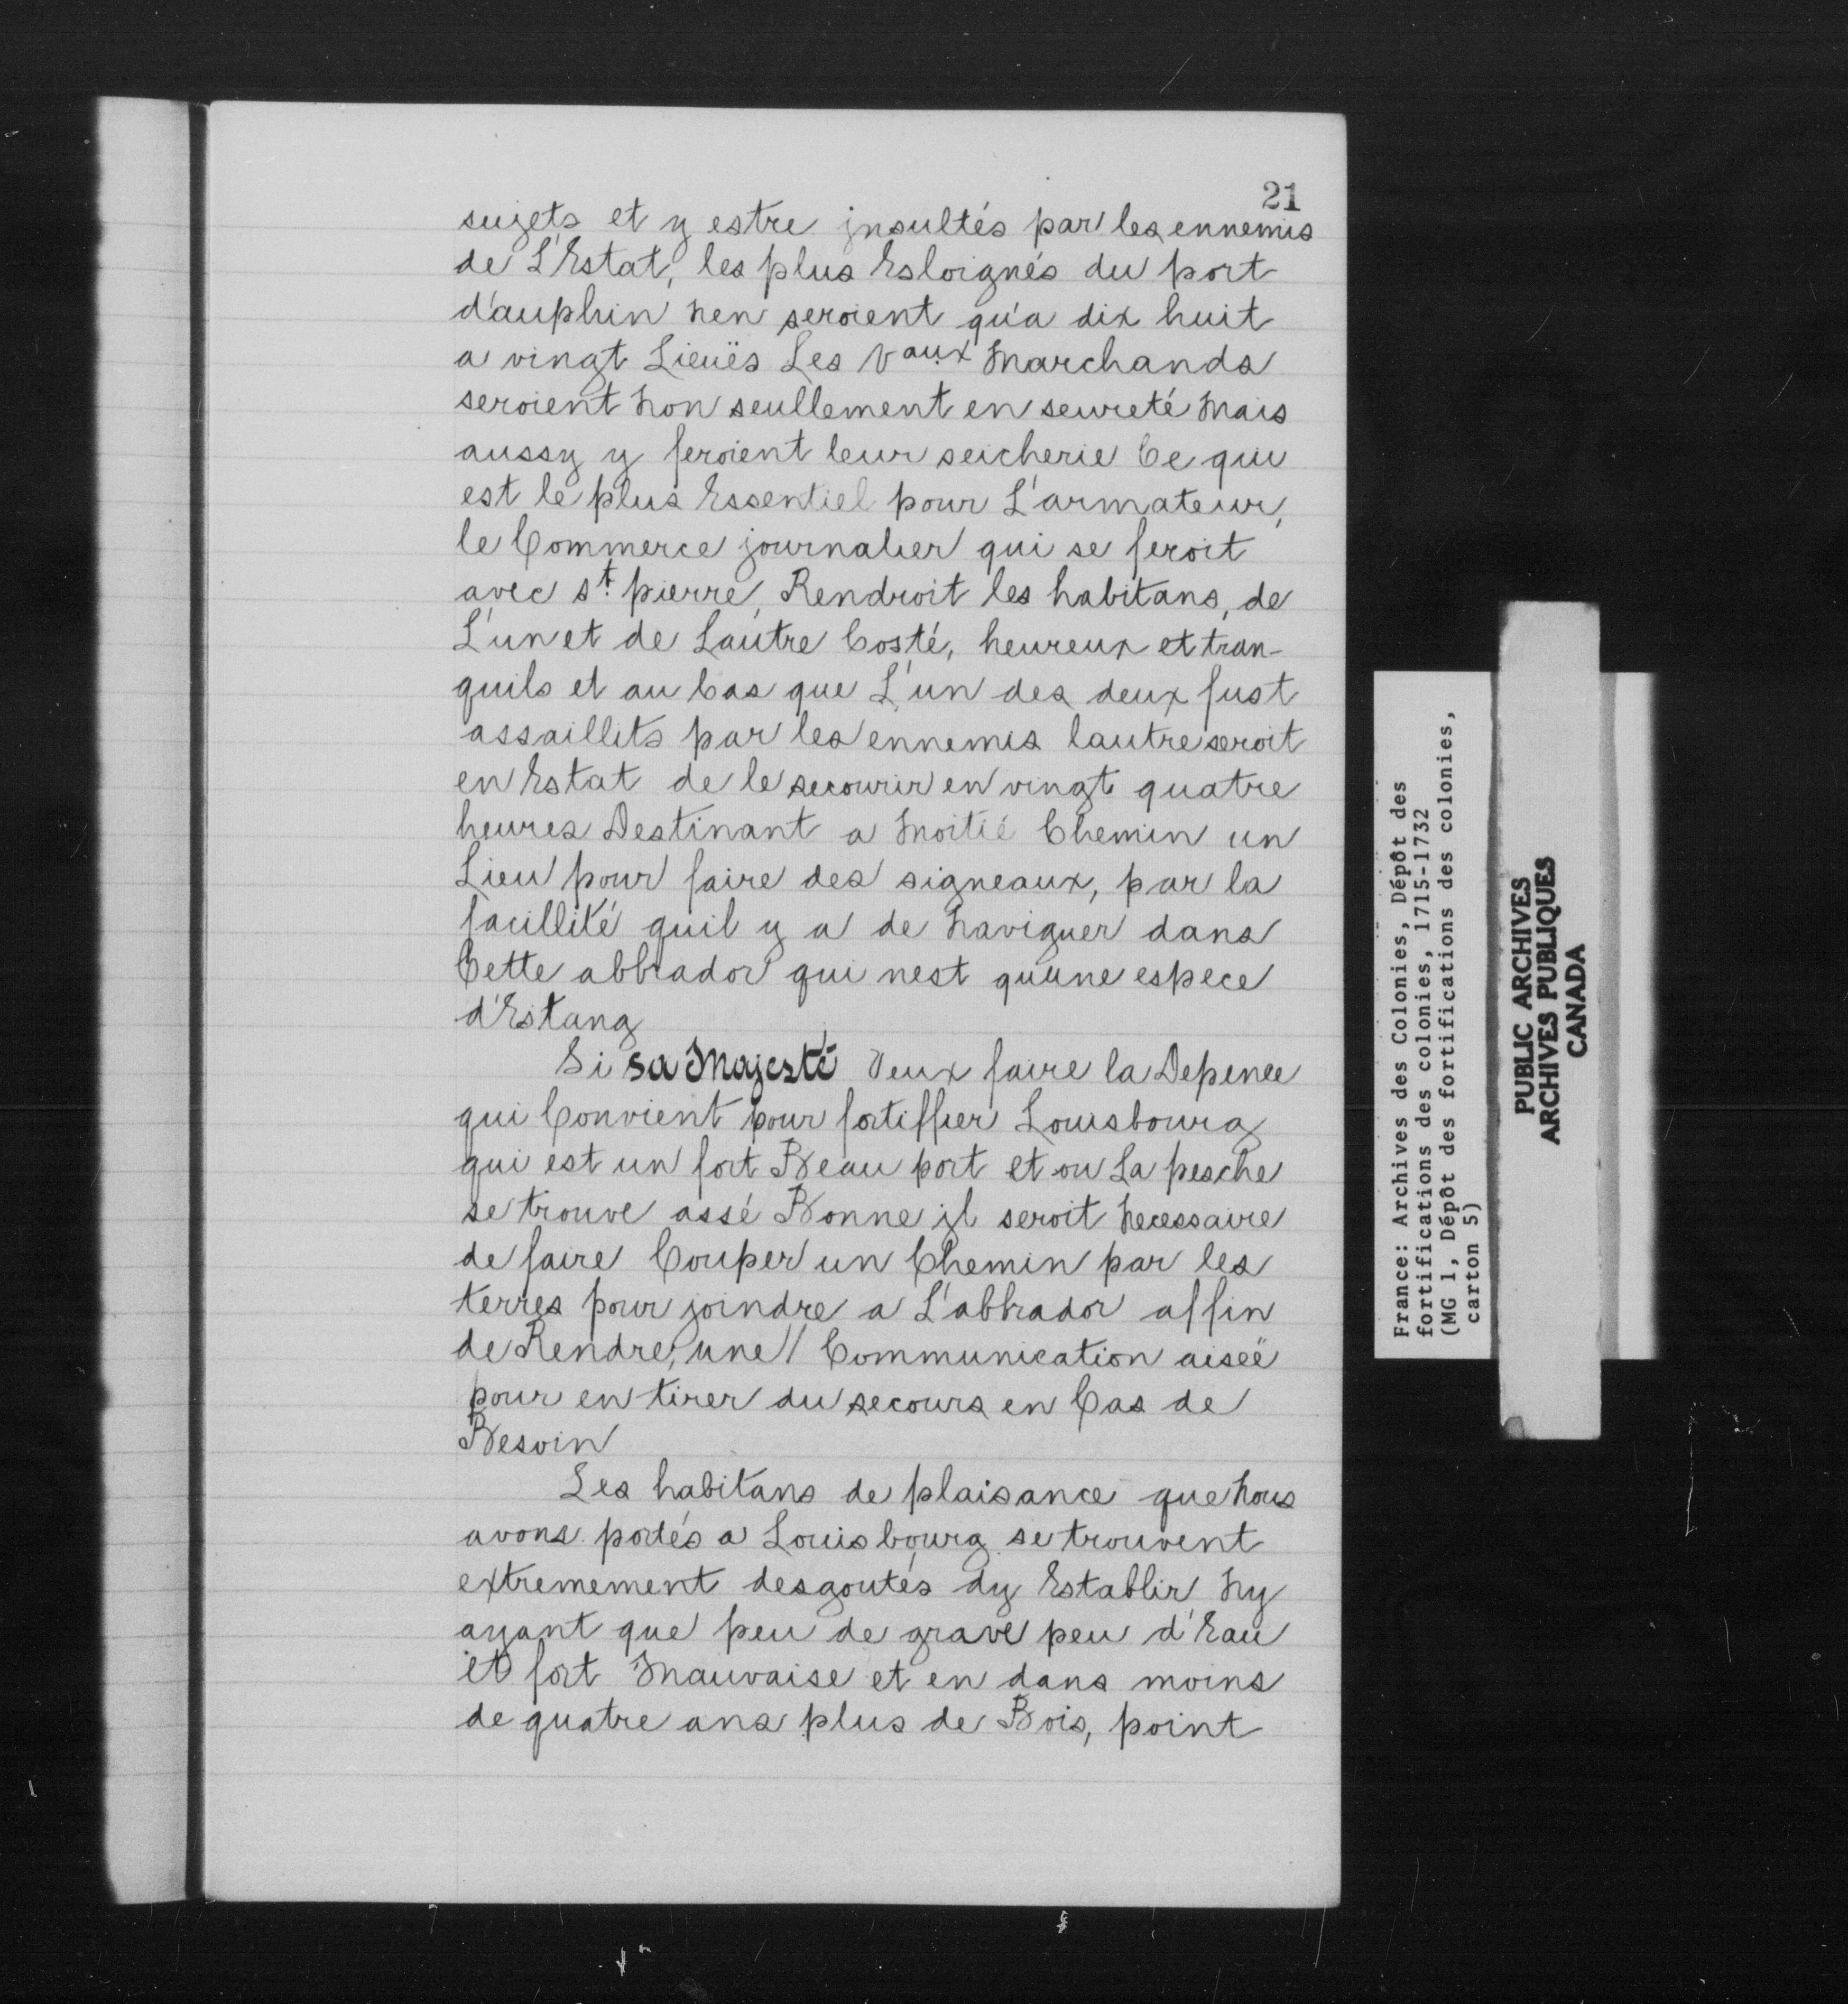 21
sujets et y estre jnsultés par les ennemis
de L'Estat, les plus Esloignés du port
d'auphin nen seroient qu'a dix huit
a vingt Lieuës Les Vaux Marchands
seroient non seullement en seureté Mais
aussy y feroient leur seicherie Ce qui
est le plus Essentiel pour L'armateur,
le Commerce journalier qui se feroit
avec st. pierre, Rendroit les habitans, de
L'un et de Lautre Costé, heureux et tran-
quils et au Cas que L'un des deux fust
assaillits par les ennemis lautre seroit
en Estat de le secourir en vingt quatre
heures Destinant a Moitié Chemin un
Lieu pour faire des signeaux, par la
facillité quil y a de Naviguer dans
Cette abbrador qui nest qu'une espece
d'Estang
Si sa Majesté Veux faire la Depence
qui Convient pour fortiffier Louisbourg
qui est un fort Beau port et ou La pesche
se trouve assé Bonne jl seroit Necessaire
de faire Couper un Chemin par les
terres pour joindre a L'abbrador affin
de Rendre, une Communication aiseë
pour en tirer du secours en Cas de
Besoin
Les habitans de plaisance que Nous
avons portés a Louisbourg se trouvent
extremement desgoutés dy Establir Ny
ayant que peu de grave peu d'Eau
et fort Mauvaise et en dans moins
de quatre ans plus de Bois, point
France: Archives des Colonies, Dépôt des
fortifications des colonies, 1715-1732
(MG 1, Dépôt des fortifications des colonies,
carton 5)
PUBLIC ARCHIVES
ARCHIVES PUBLIQUES
CANADA